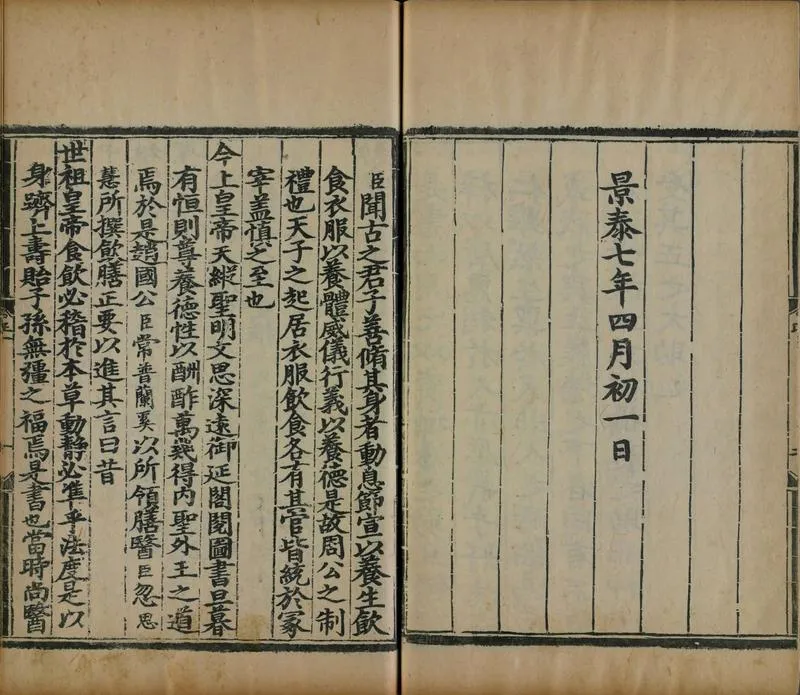 景泰七年四月初一日
臣聞古之君子善脩其身者動息節宣以養生飲
食衣服以養體威儀行義以養德是故周公之制
禮也天子之起居衣服飲食各有其官皆統於冢
宰盖慎之至也
今上皇帝天縱聖明文思深遠御延閣閱圖書旦暮
有恒則尊養德性以酬酢萬幾得內聖外王之道
焉於是趙國公臣常普蘭奚以所領膳醫臣忽思
慧所撰飲膳正要以進其言曰昔
世祖皇帝食飲必稽於本草動静必準乎法度是以
身躋上壽貽子孫無疆之福焉是書也當時尚醫